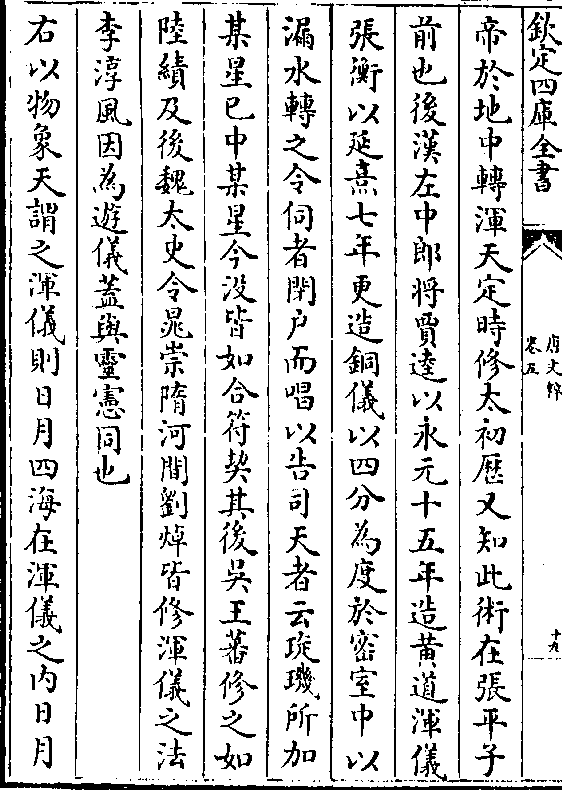 欽定四庫全書
唐文粹
卷五
十九
帝於地中轉渾天定時修太初歷又知此術在張平子
前也後漢左中郎將賈逵以永元十五年造黄道渾儀
張衡以延熹七年更造銅儀以四分為度於密室中以
漏水轉之令伺者閉户而唱以告司天者云琁璣所加
某星已中某星今没皆如合符契其後吳王蕃修之如
陸績及後魏太史令晁崇隋河間劉焯皆修渾儀之法
李淳風因為遊儀蓋與靈憲同也
右以物象天謂之渾儀則日月四海在渾儀之内日月